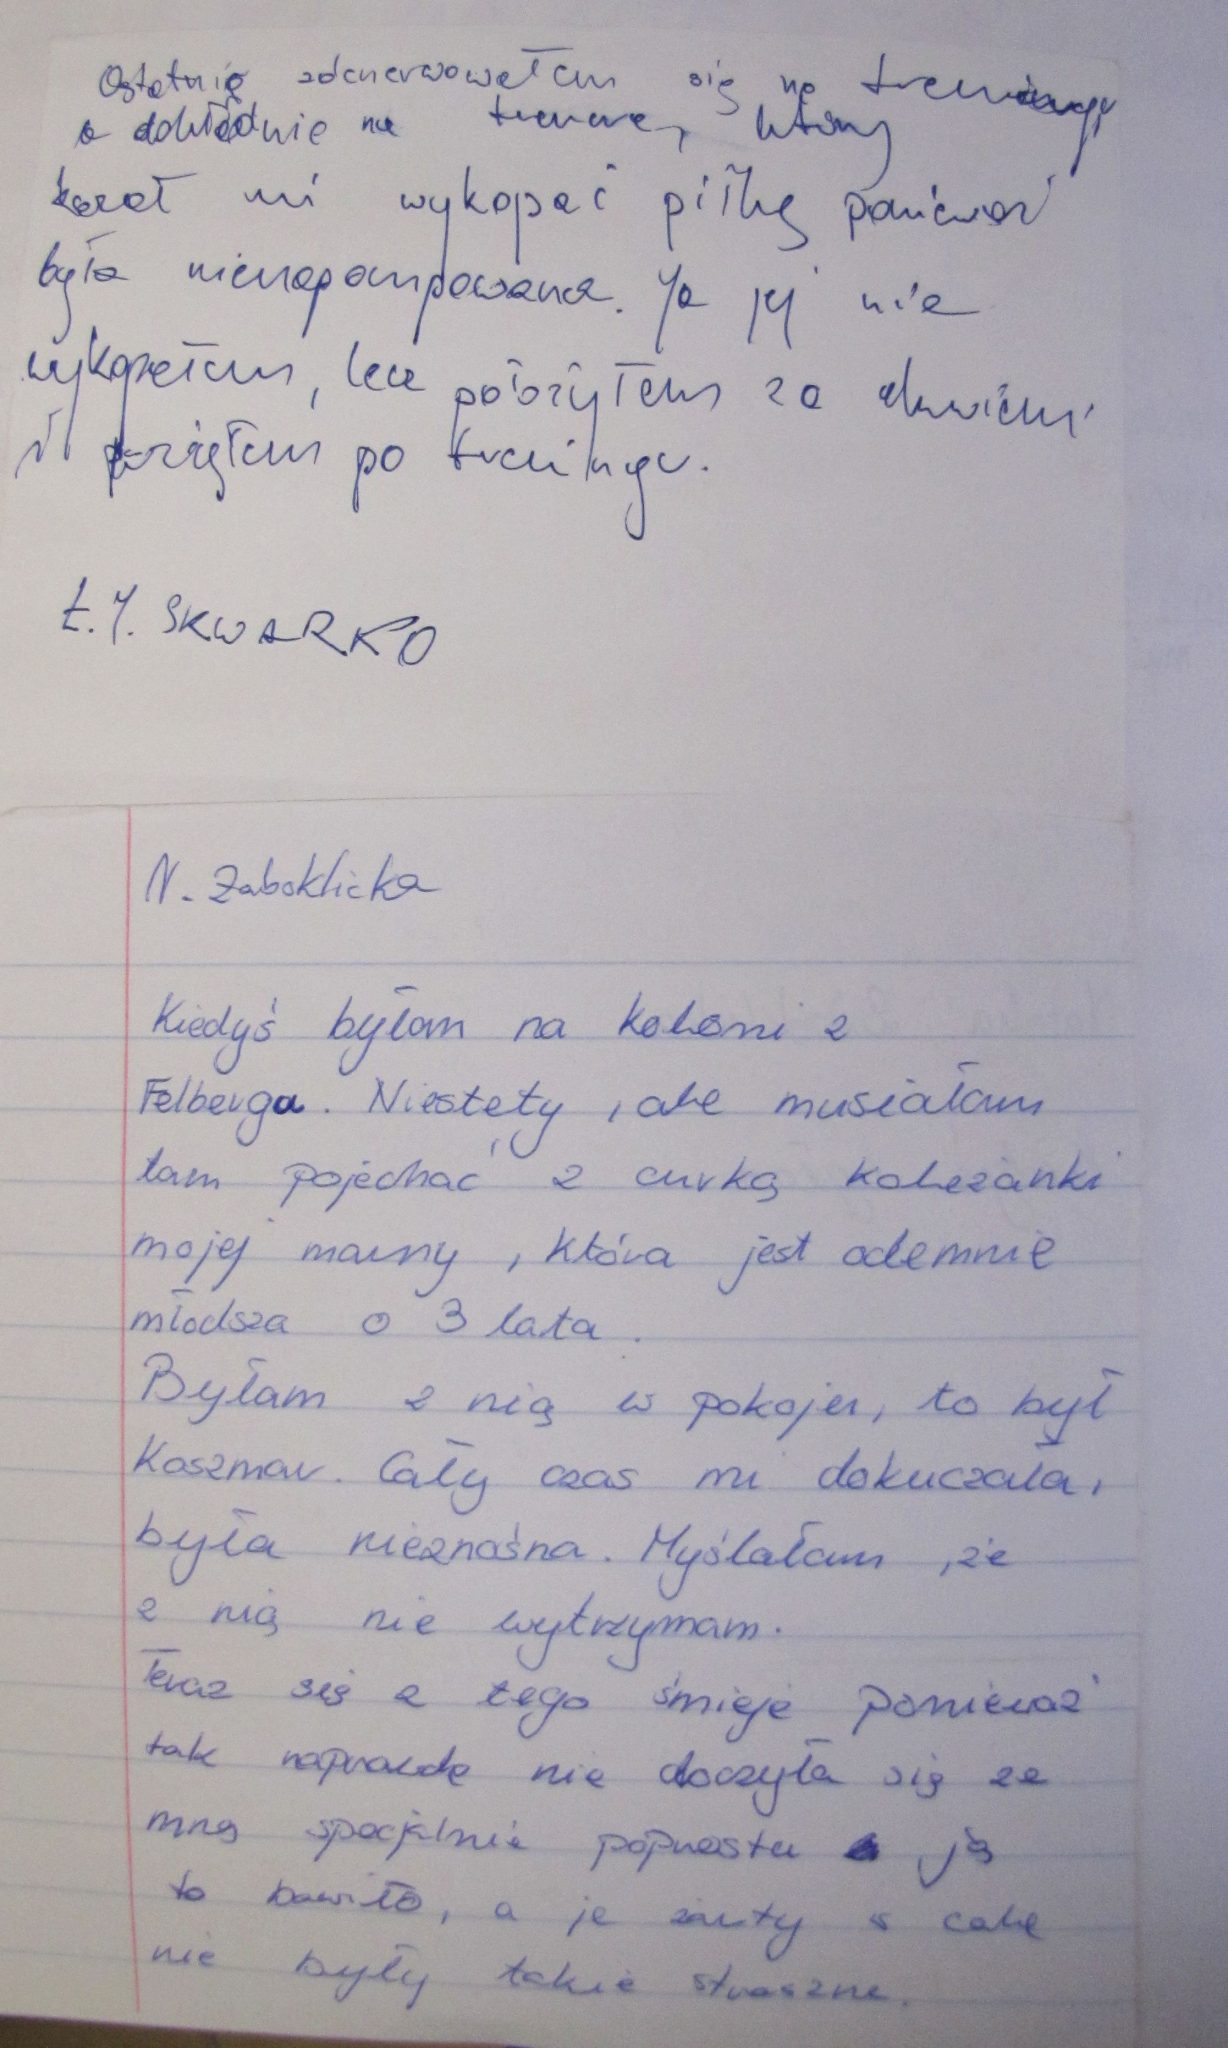 Ostatnio zdenerwowałem się na treningu
a dokładnie na trenera, który
kazał mi wykopać piłkę ponieważ
była nienapompowana. Ja jej nie
wykopałem, lecz położyłem za drzwiami
i wziąłem po treningu.
Ł.J. SKWARKO
N. Zaboklicka
Kiedyś byłam na koloni z
Felberga. Niestety, ale musiałam
tam pojechać z curką koleżanki
mojej mamy, która jest odemnie
młodsza o 3 lata.
Byłam z nią w pokoju, to był
koszmar. Cały czas mi dokuczała,
była nieznośna. Myślałam, że
z nią nie wytrzymam.
Teraz się z tego śmieję ponieważ
tak naprawdę nie droczyła się ze
mną specjalnie poprostu ją
to bawiło, a jej żarty wcale
nie były takie straszne.